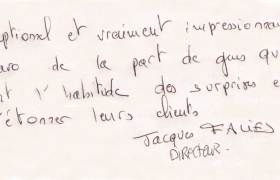 ptionel et vraiment impressionna
aro de la part de gens qu
nt l'habitude des surprises e
'étonner leurs clients
Jacques FALIES
DIRECTEUR.